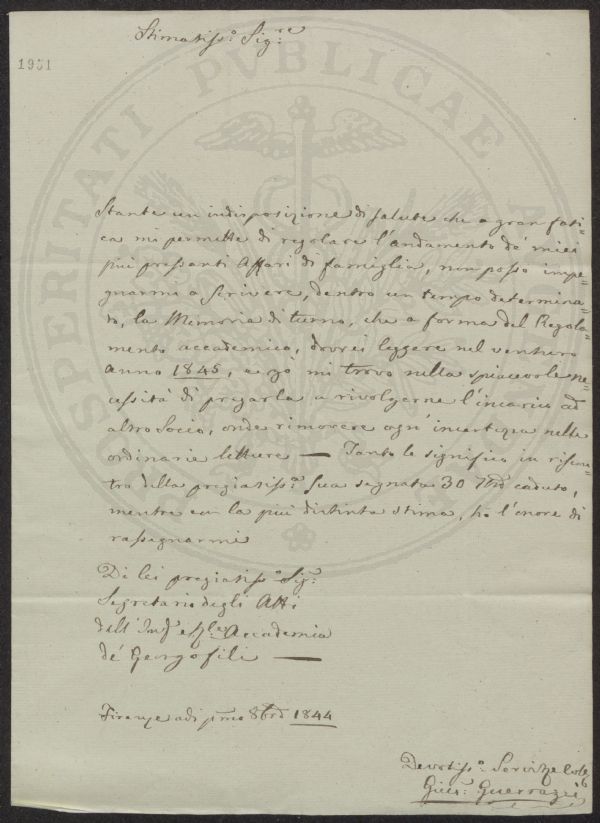 Stimatisso. Sigre.
1951
Stante un indisposizione di salute che a gran fati=
ca mi permette di regolare l'andamento de' miei
più pressanti Affari di famiglia, non posso impe=
gnarmi a scrivere, dentro un tempo determina=
to, la Memoria di turno, che a forma del Regola=
mento accademico, dovrei leggere nel venturo
Anno 1845, e mi trovo nella spiacevole ne=
cessità di pregarla a rivolgerne l'incarico ad
altro Socio, onde rimovere ogn' incertezza nelle
ordinarie letture — Tanto le significo in riscon=
tro della pregiatissa. sua segnata 30 7bre caduto,
mentre con la più distinta stima, ho l'onore di
rassegnarmi
Di lei pregiatisso. Sigr.
Segretario degli Atti
dell' Imp. e Rle Accademia
de' Georgofili —
Firenze adi pmo 8bre 1844
Devotisso. Servitore
Guerrazzi
PROSPERITATI PVBLICAE